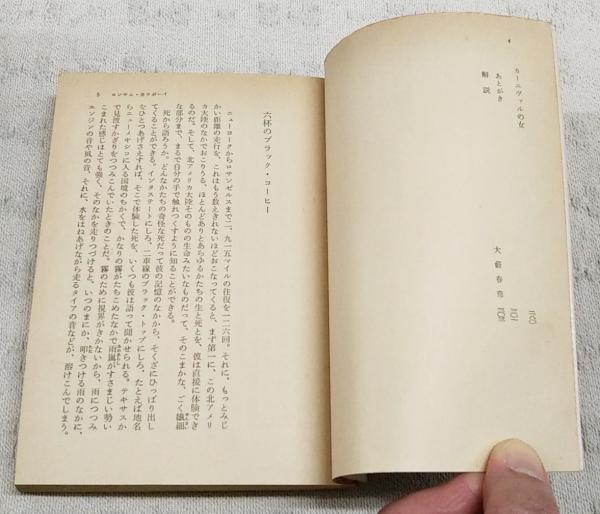 4
カーニヴァルの女
あとがき
解説
大藪春彦
5 ロンサム・カウボーイ
六杯のブラック・コーヒー
ニューヨークからロサンゼルスまで二、九一五マイルの往復を一二六回。それに、もっとみじ
かい距離の走行を、これはもう数えきれないほどおこなってくると、まず第一に、この北アメリ
カ大陸のなかでおこりうる、ほとんどありとあらゆるかたちの生と死とを、彼は直接に体験でき
るのだ。そして、北アメリカ大陸そのものの生命みたいなものだって、そのこまかな、ごく繊細
な部分まで、まるで自分の手で触れつくすように知ることができる。
死から語ろうか。どんなかたちの奇怪な死だって彼の記憶のなかから、そくざにひっぱり出し
てくることができる。インタステートにしろ、二車線のブラック・トップにしろ、たとえば地名
をひとつあげさえすれば、そこで体験した死を、いくつも彼は語って聞かせられる。テキサスか
らニューメキシコに入る国境のちかくで、かなりの霧がたちこめたなかで雨嵐がすさまじい勢い
で見渡すかぎりをつつみこんでいたときのことだ。霧のために視界がきかないから、雨につつみ
こまれた感じはとても強く、そのなかを走りつづけると、いつのまにか、叩きつける雨のなかに、
エンジンの音や風の音、それに、水をはねあげながら走るタイアの音などが、溶けこんでしまう。